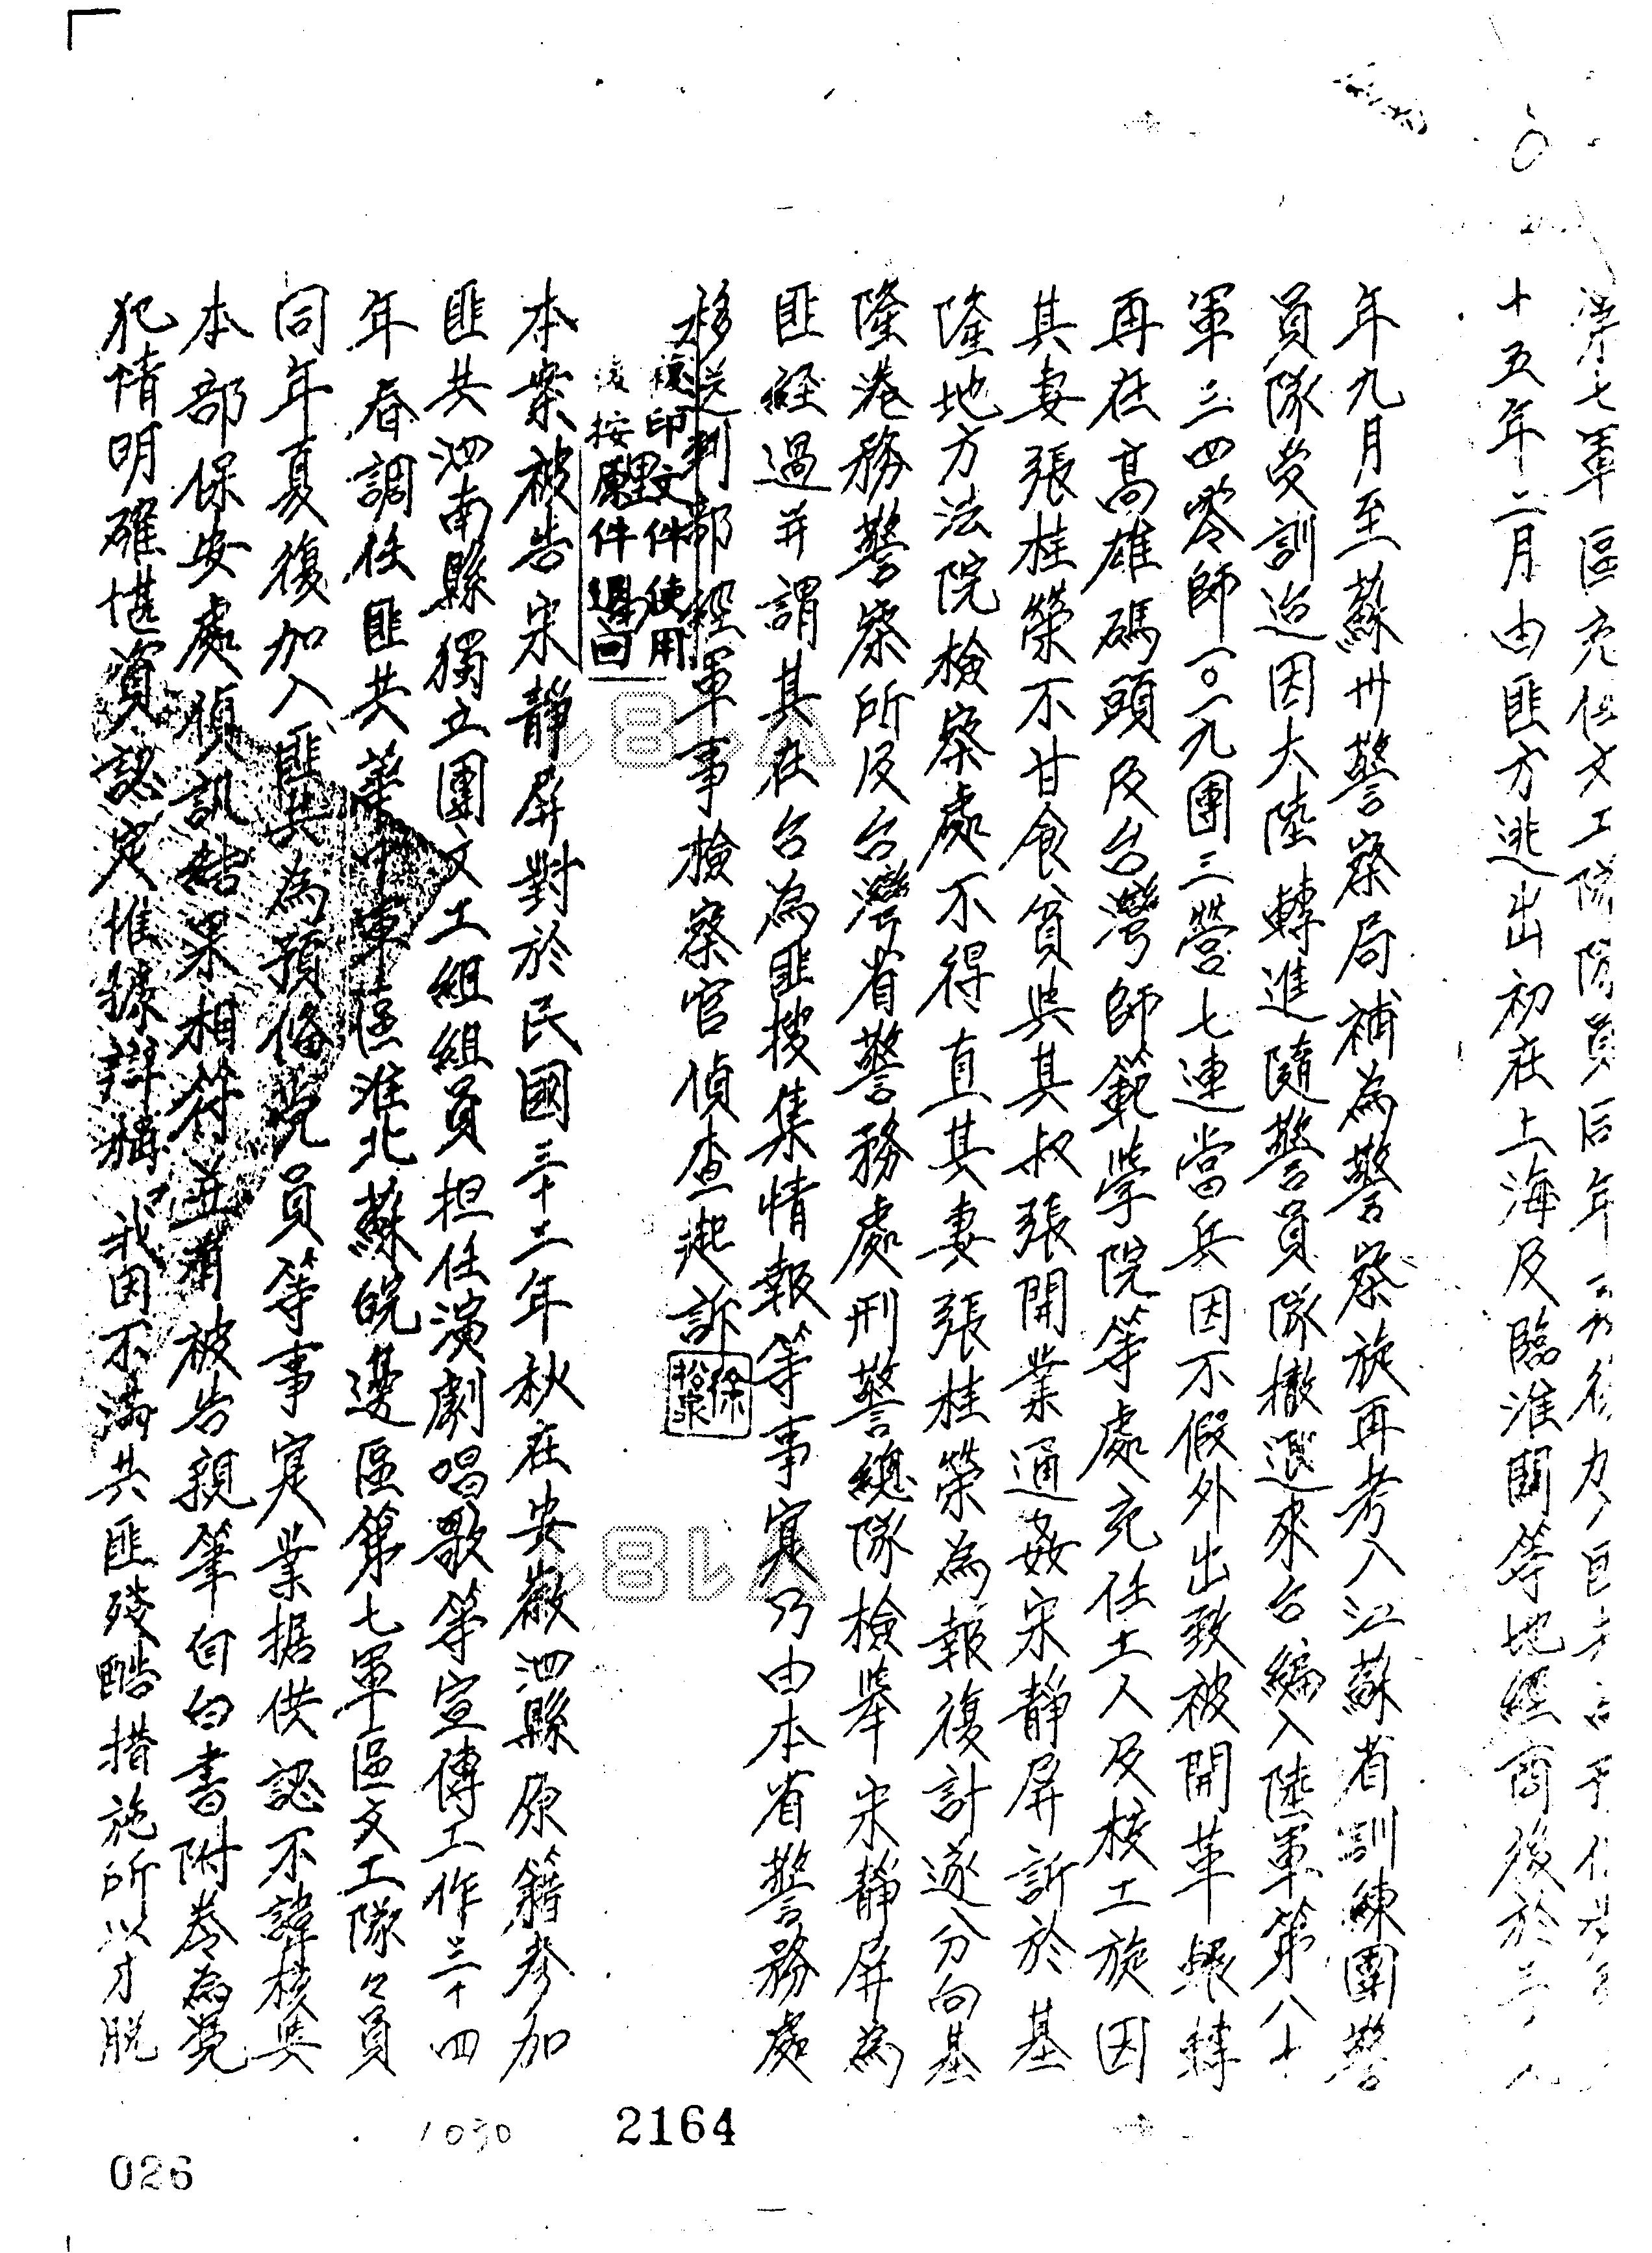 第七軍區充任文工隊隊員后年
十五年二月由匪方逃出初在上海及臨淮關等地經商後於三
年九月至蘇州警察局補為警察旋再考入江蘇省訓練團警
員隊受訓迨因大陸轉進隨警員隊撤退來台編入陸軍第八十
軍三四零師一〇一九團三營七連當兵因不假外出致被開革嗣轉
再在高雄碼頭及台灣師範學院等處充任土人及校工旋因
其妻張桂榮不甘食貧與其叔張開業通姦宋靜屏訴於基
隆地方法院檢察處不得直其妻張桂榮為報復計遂分向基
隆港務警察所及台灣省警務處刑警總隊檢舉宋靜屏為
匪經過并謂其在台為匪搜集情報等事寔乃由本省警務處
移送到部經軍事檢察官偵查起訴
徐松泉
複印文件使用
後按原件退回
本案被告宋靜屏對於民國三十二年秋在安徽泗縣原籍參加
匪共泗南縣獨立團文工組組員担任演劇唱歌等宣傳工作三十四
年春調任匪共華中軍區淮北蘇皖邊區第七軍區文工隊々員
同年夏復加入匪共為預備党員等事寔業据供認不諱核與
本部保安處偵訊結果相符並有被告親筆自白書附卷為憑
犯情明確堪資認定惟據辯稱我因不滿共匪殘酷措施所以才脫
2164
1030
026